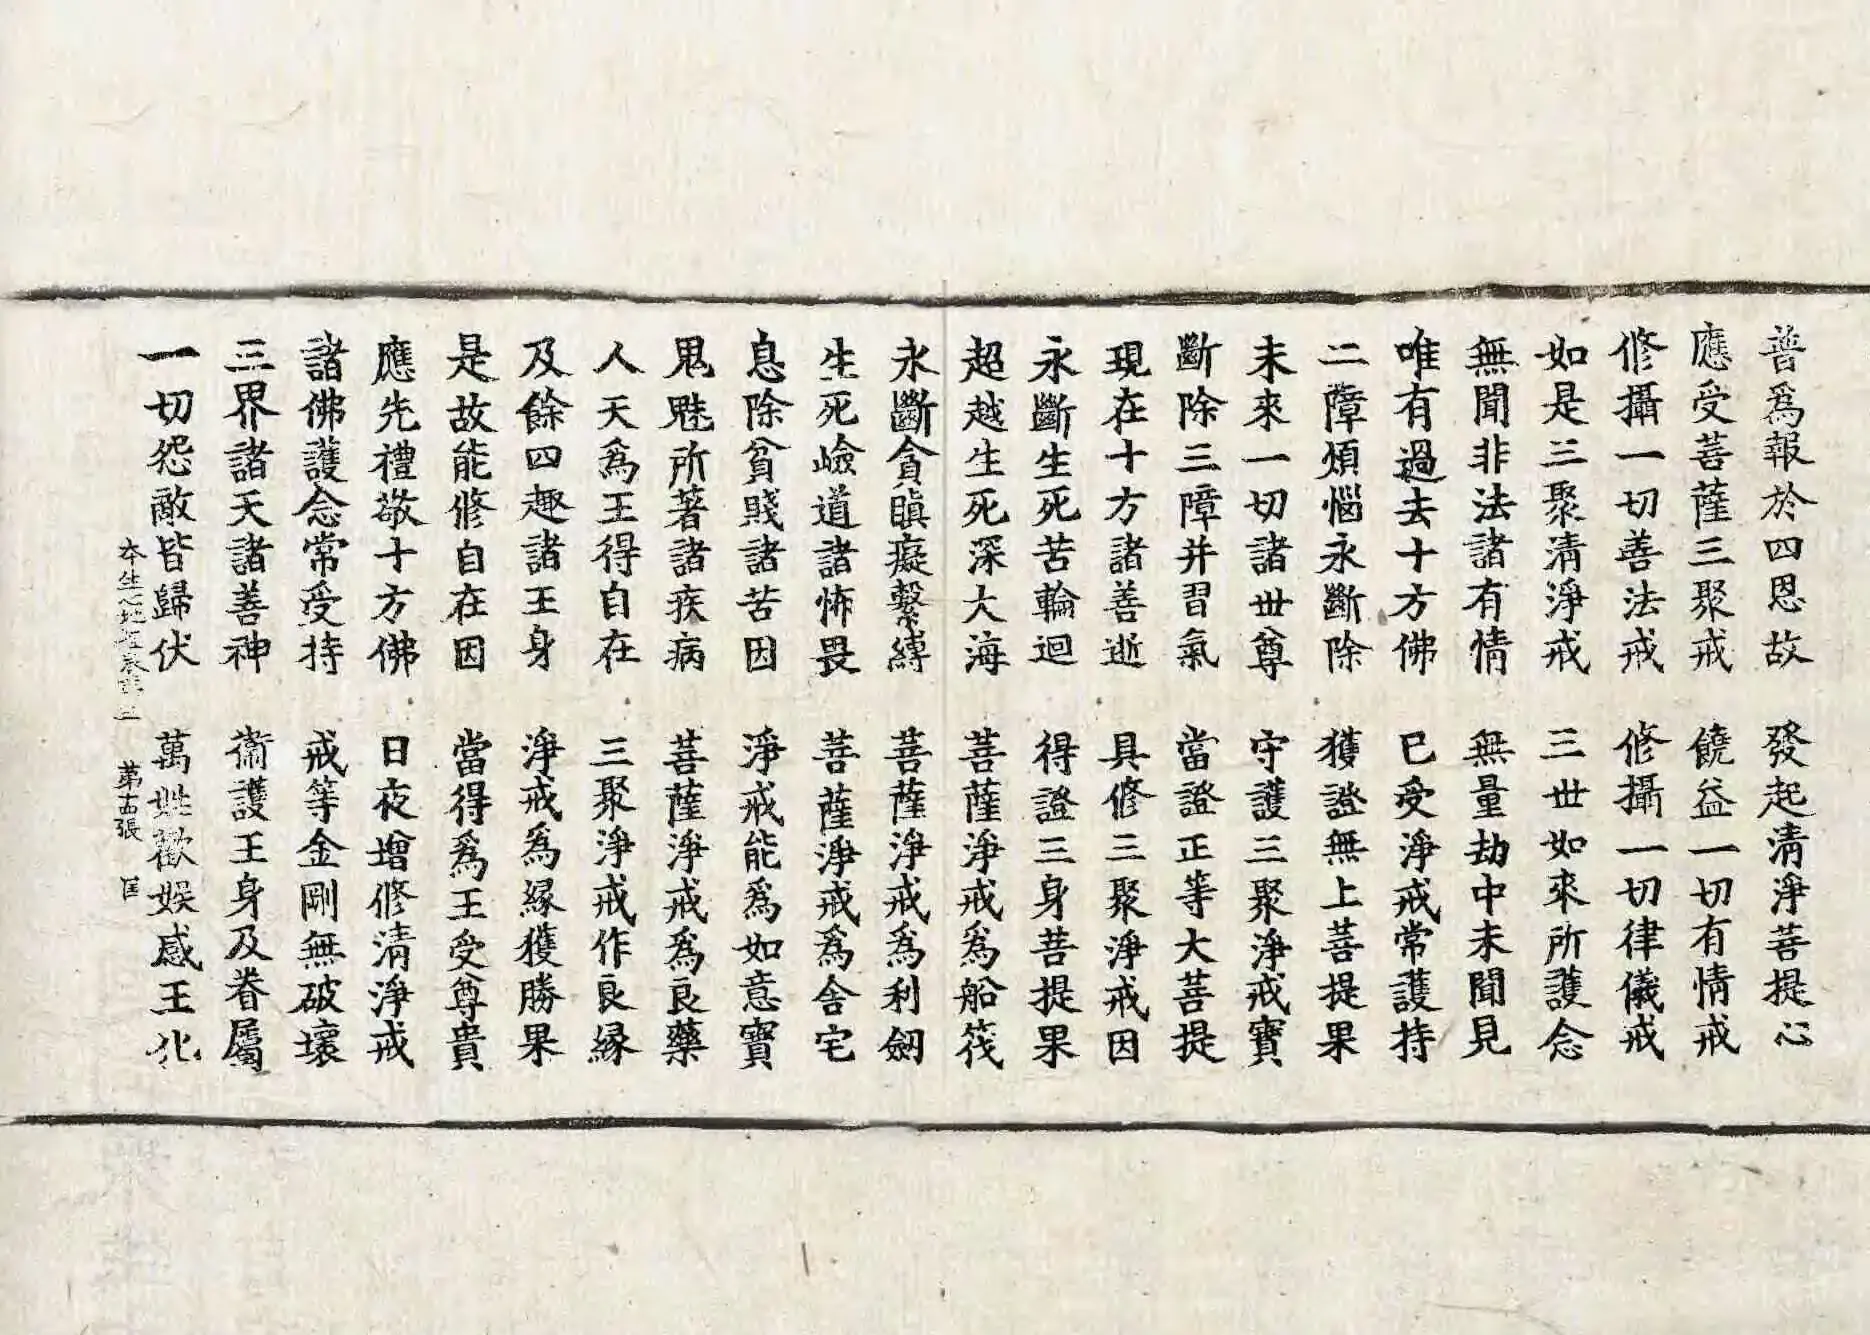 普爲報於四恩故　發起清淨菩提心
應受菩薩三聚戒　饒益一切有情戒
修攝一切善法戒　修攝一切律儀戒
如是三聚清淨戒　三世如來所護念
無聞非法諸有情　無量劫中未聞見
唯有過去十方佛　已受淨戒常護持
二障煩惱永斷除　獲證無上菩提果
未來一切諸世尊　守護三聚淨戒寶
斷除三障并習氣　當證正等大菩提
現在十方諸善逝　具修三聚淨戒因
永斷生死苦輪迴　得證三身菩提果
超越生死深大海　菩薩淨戒爲船筏
永斷貪瞋癡繫縛　菩薩淨戒爲利劒
生死嶮道諸怖畏　菩薩淨戒爲舍宅
息除貧賤諸苦因　淨戒能爲如意寶
鬼魅所著諸疾病　菩薩淨戒爲良藥
人天爲王得自在　三聚淨戒作良緣
及餘四趣諸王身　淨戒爲緣獲勝果
是故能修自在因　當得爲王受尊貴
應先禮敬十方佛　日夜增修清淨戒
諸佛護念常受持　戒等金剛無破壞
三界諸天諸善神　衞護王身及眷屬
一切怨敵皆歸伏　萬姓歡娛感王化
本生心地觀經第三　第十五張　匡